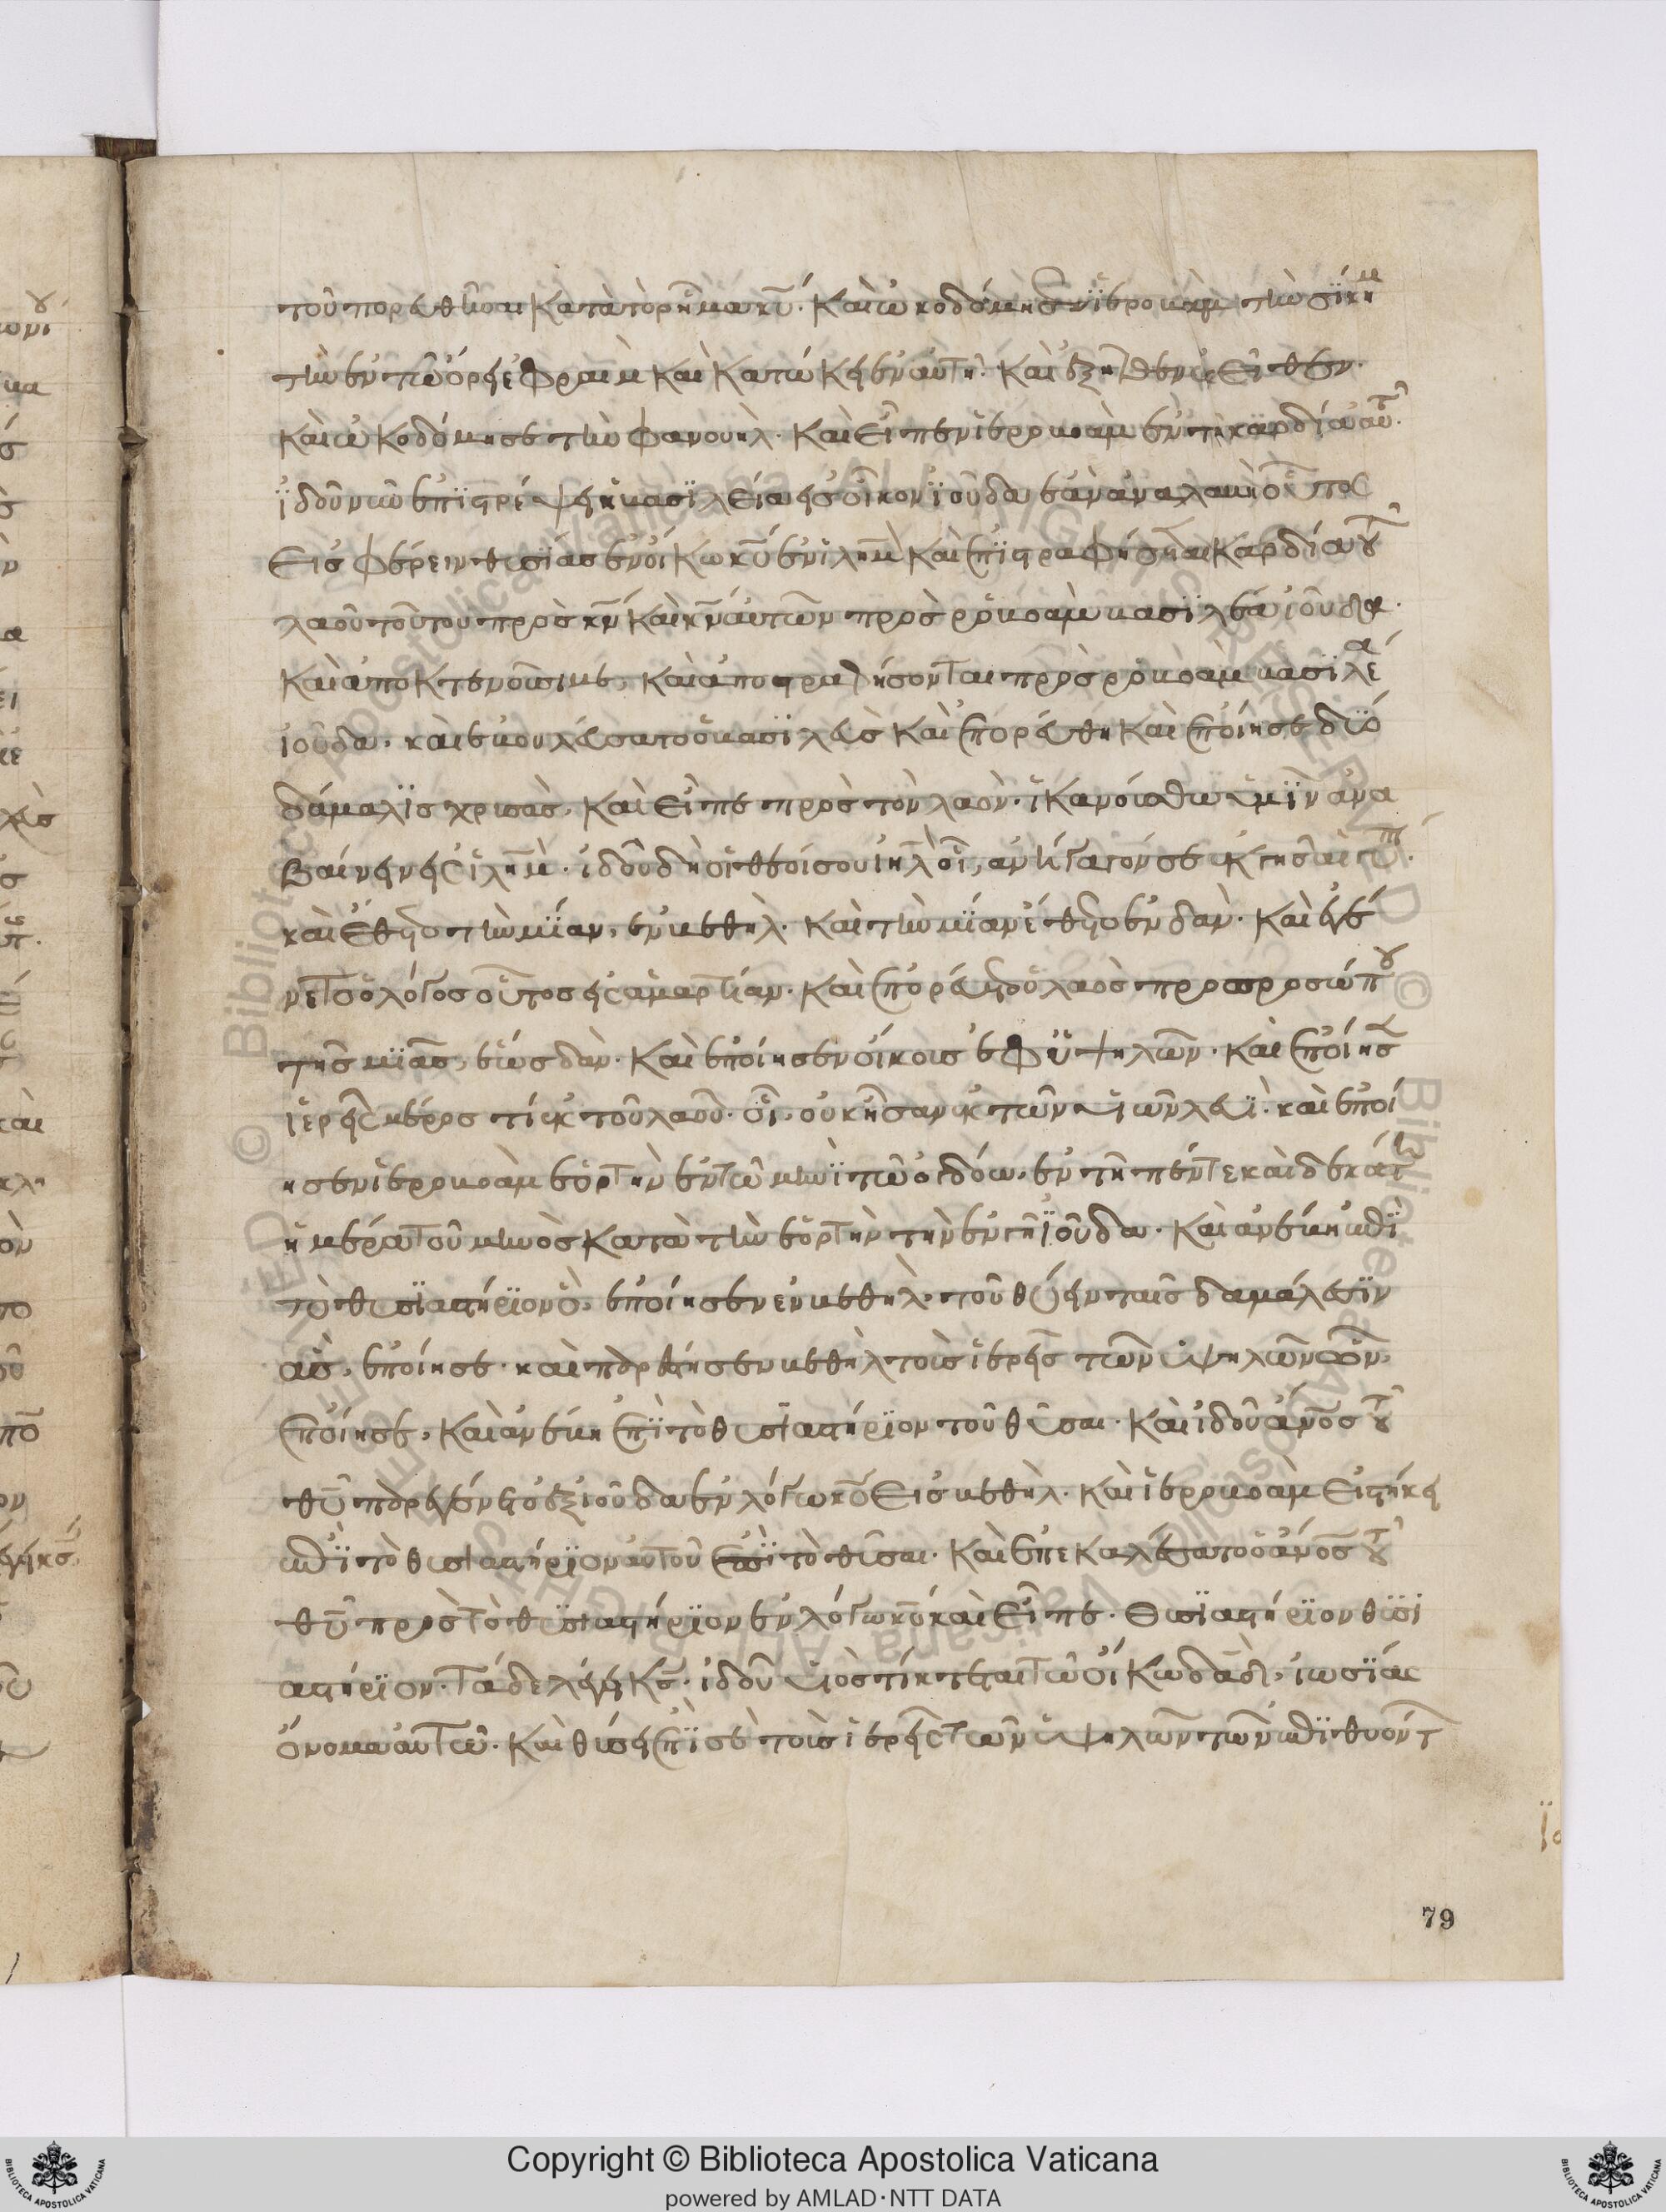 τοῦ πορευθῆναι κατὰ τὸ ρῆμα κυ. καὶ ὠκοδόμησεν ἱεροβοὰμ τὴν σίκημ
τὴν ἐν τῷ ὄρει ἐφραὶμ καὶ κατώκει ἐν αὐτῆ. καὶ ἐξῆλθεν ἐκεῖθεν.
καὶ ὠκοδόμησε τὴν φανουὴλ. καὶ εἶπεν ἱεροβοὰμ ἐν τῆ καρδία αὐτοῦ.
ἰδοῦ νῦν ἐπιστρέψει ἡ βασιλεία εἰς οἶκον ἰοῦδα ἐὰν ἀναβῆ ὁ λαὸς οὗτος
εἰσφέρειν θυσίας ἐν οἴκω κυ ἐν ἱλημ καὶ ἐπιστραφήσεται καρδία τοῦ
λαοῦ τούτου πρὸς κν καὶ κν αὐτῶν πρὸς ροβοὰμ βασιλέα ἰούδα.
καὶ ἀποκτενοῦσι με, καὶ ἀποστραφήσονται πρὸς ροβοὰμ βασιλέα
ἰούδα. καὶ ἐβουλεύσατο ὁ βασιλεὺς καὶ ἐπορεύθη καὶ ἐποίησε δύο
δάμαλις χρυσὰς, καὶ εἶπε πρὸς τὸν λαὸν. ἱκανούσθω ὑμῖν ἀνα
βαίνειν εἰς ἱλημ. ἰδοῦ δὴ οἱ θεοί σου ιηλ οἱ, ἀνήγαγόν σε ἐκ γῆς αἰγύπτ.
καὶ ἔθετο τὴν μίαν, ἐν βεθὴλ. καὶ τὴν μίαν ἔθετο ἐν δὰν. καὶ ἐγέ
νετο ὁ λόγος οὗτος εἰς ἁμαρτίαν. καὶ ἐπορεύετο ὁ λαὸς πρὸ προσώπου
τῆς μιᾶς, ἕως δὰν. καὶ ἐποίησεν οἴκους ἐφ ὑψηλῶν. καὶ ἐποίησ
ἱερεῖς μέρος τί ἐκ τοῦ λαοῦ. οἳ, οὐκ ἦσαν ἐκ τῶν υἱῶν λευὶ. καὶ ἐποί
ησεν ἱεροβοὰμ ἑορτὴν ἐν τῷ μηνὶ τῷ ὀγδόω, ἐν τῆ πέντε καὶ δεκάτη
ἡμέρα τοῦ μηνὸς κατὰ τὴν ἑορτὴν τὴν ἐν γῆ ἰοῦδα. καὶ ἀνέβη ἐπὶ
τὸ θυσιαστήριον ὃ, ἐποίησεν ἐν βεθὴλ, τοῦ θύειν ταῖς δαμάλεσιν
αἷς, ἐποίησε. καὶ παρέστησεν βεθὴλ τοὺς ἱερεῖς τῶν ὑψηλῶν ὧν,
ἐποίησε, καὶ ἀνέβη ἐπὶ τὸ θυσιαστήριον τοῦ θῦσαι. καὶ ἰδοῦ ἄνος τοῦ
θυ παρεγένετο ἐξ ἰοῦδα ἐν λόγω κυ εἰς βεθὴλ. καὶ ἱεροβοὰμ εἰστήκει
ἐπὶ τὸ θυσιαστήριον αὐτοῦ ἐπὶ τὸ θῦσαι. καὶ ἐπεκαλέσατο ὁ ἄνος τοῦ
θυ πρὸς τὸ θυσιαστήριον ἐν λόγω κυ καὶ εἶπε. θυσιαστήριον θυσι
αστήριον. τάδε λέγει κς. ἰδοῦ υἱὸς τίκτεται τῷ οἴκω δαδ, ἰωσίας
ὄνομα αὐτῷ. καὶ θύσει ἐπὶ σὲ τοὺς ἱερεῖς τῶν ὑψηλῶν τῶν ἐπιθυοντ
79
Copyright © Biblioteca Apostolica Vaticana
powered by AMLAD·NTT DATA